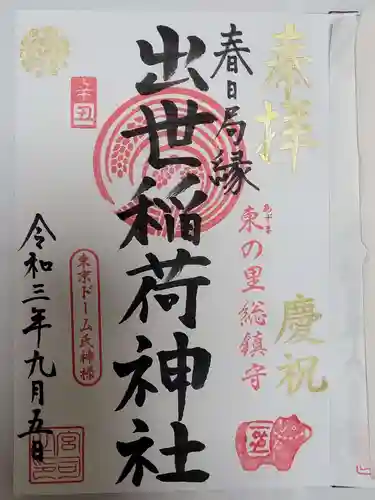 奉拝
慶祝
あずま
東の里総鎮守
春日局縁
出世稲荷神社
辛丑
東京ドーム氏神様
令和三年九月五日